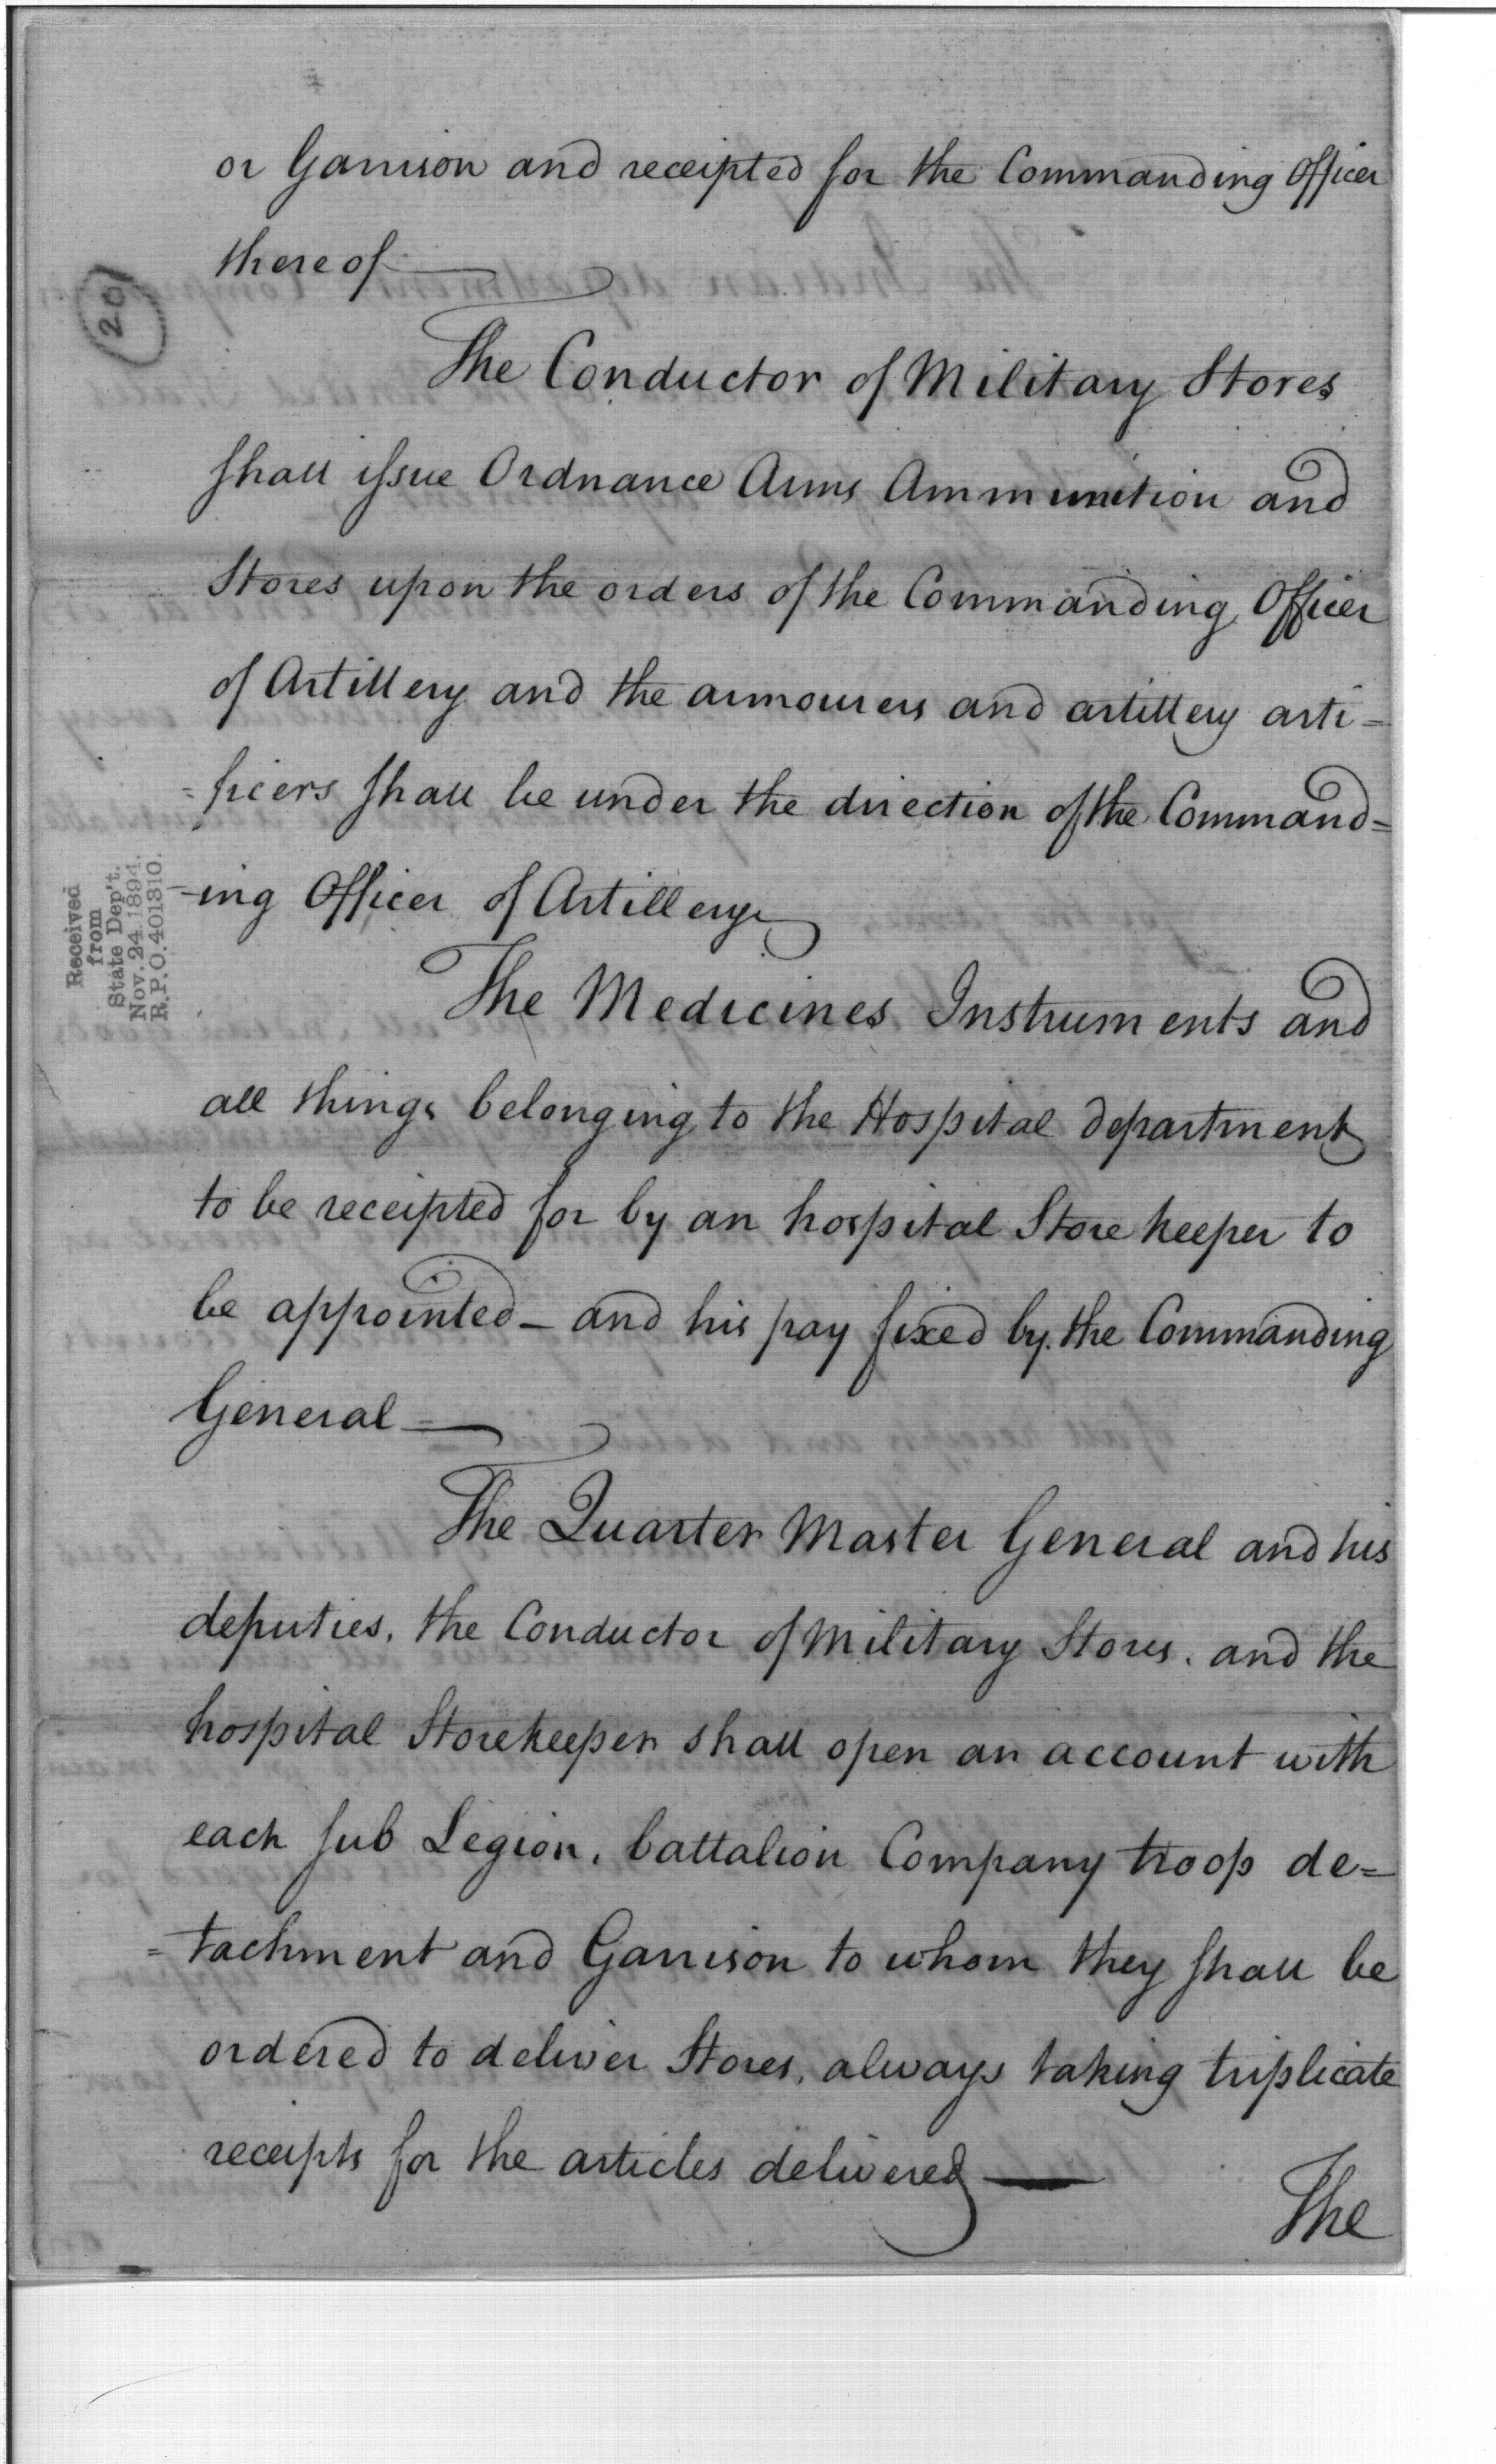 or Garrison and receipted for the Commanding Officer
thereof —
The Conductor of Military Stores
shall issue Ordnance Arms Ammunition and
Stores upon the orders of the Commanding Officer
of Artillery and the armourers and artillery arti=
=ficers shall be under the direction of the Command=
-ing Officer of Artillery
The Medicines Instruments and
all things belonging to the Hospital department
to be receipted for by an hospital Store keeper to
be appointed — and his pay fixed by the Commanding
General —
The Quarter Master General and his
deputies, the Conductor of Military Stores, and the
hospital Storekeeper shall open an account with
each sub Legion, battalion Company troop de=
=tachment and Garrison to whom they shall be
ordered to deliver Stores, always taking triplicate
receipts for the articles delivered —
The
201
Received
from
State Dep't.
Nov. 24. 1894.
R.P.O. 401310.